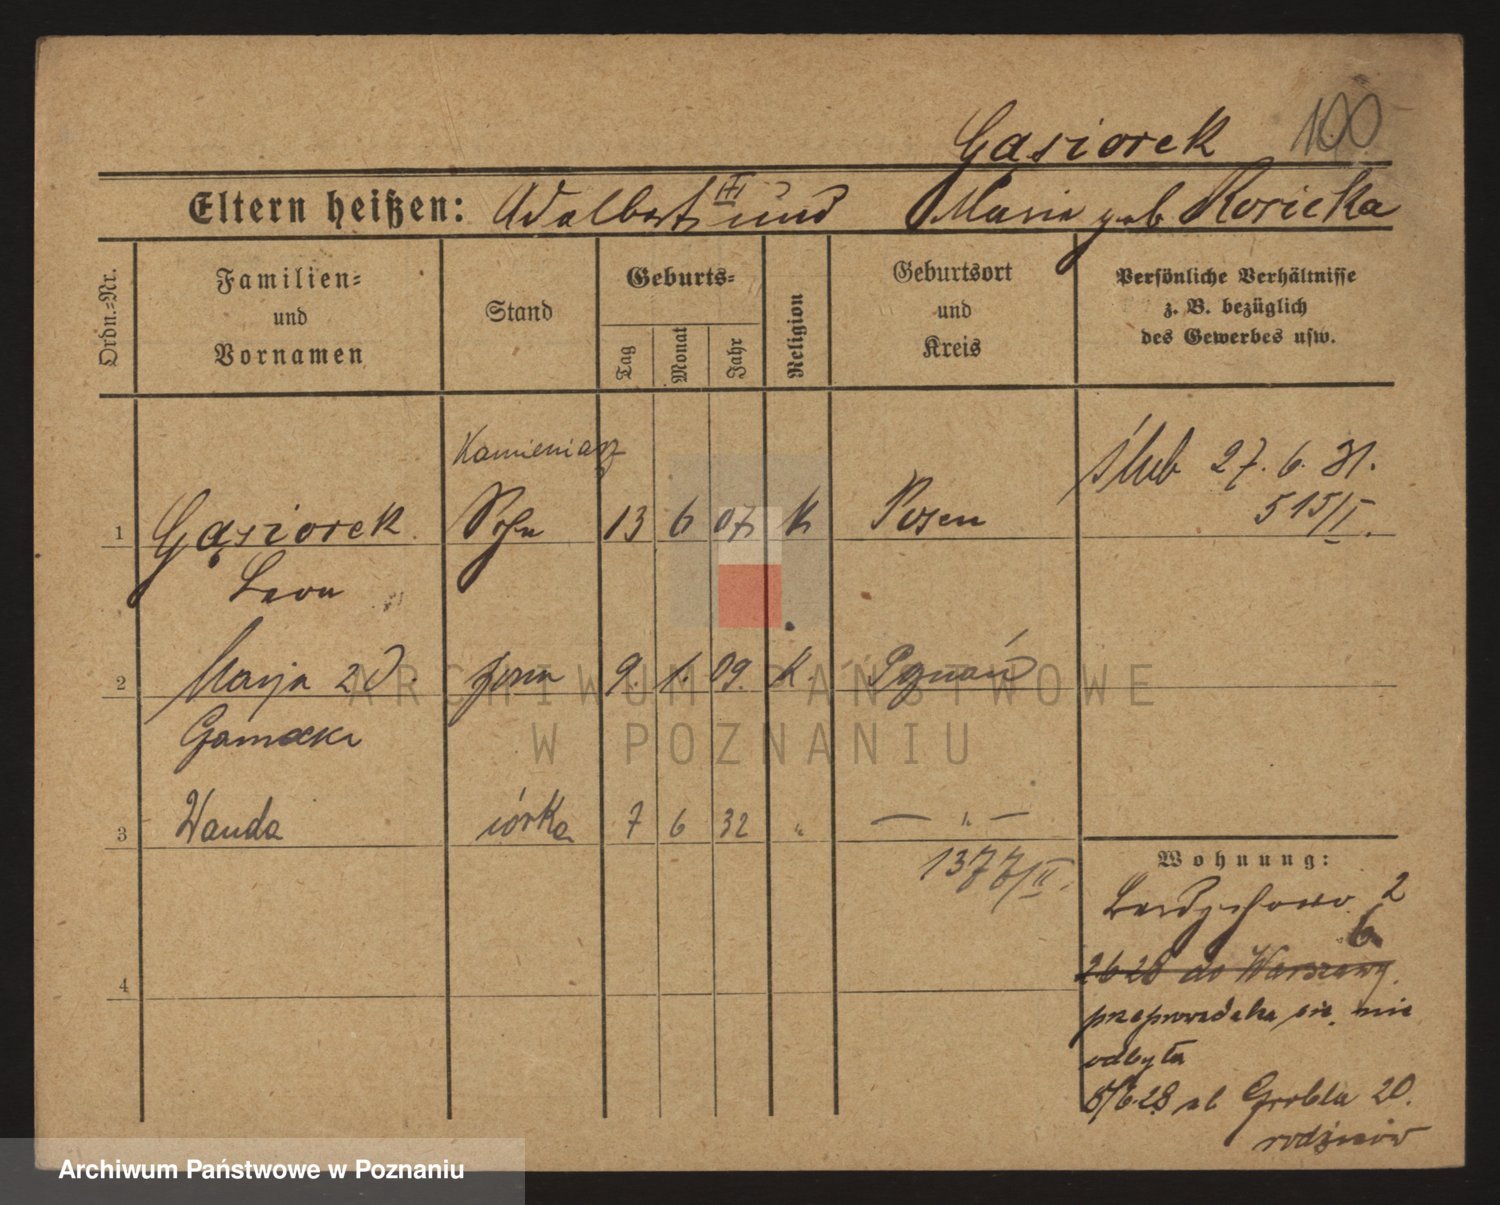 Gasiorek 100
Eltern heißen: Adalbert III und Maria geb Koricka
Ordn.=Nr.
Familien=
und
Vornamen
Stand
Geburts=
Tag
Monat
Jahr
Religion
Geburtsort
und
Kreis
Persönliche Verhältnisse
z. B. bezüglich
des Gewerbes usw.
Kamieniarz
ślub 27. 6. 31.
515/I.
1 Gąsiorek Sohn 13 6 07 K Posen
Leon
2 Marja zd. żona 9. 1. 09. K. Poznań
3 Wanda córka 7 6 32 " — " —
1377/II.
4
Wohnung:
2
6
26 28 do Warszawy
przeprowadzka się nie
odbyła
8/6.28 ul Grobla 20.
ARCHIWUM PAŃSTWOWE
W POZNANIU
Archiwum Państwowe w Poznaniu